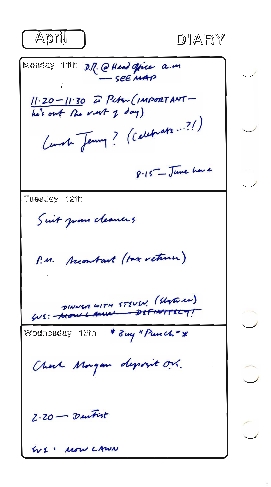 April
DIARY
Monday 11th D.R. @ Head Office a.m
— SEE MAP
11.20 – 11.30 Peter (IMPORTANT —
he's out the rest of day)
Lunch Jenny? (Celebrate...?!)
8.15 — June here
Tuesday 12th
Suit from cleaners
P.M. Accountant (tax returns)
DINNER WITH STEVEN
EVE: MOW LAWN DEFINITELY!
Wednesday 13th * Buy "Punch" *
Check Morgan deposit OK.
2.20 — Dentist
EVE: MOW LAWN